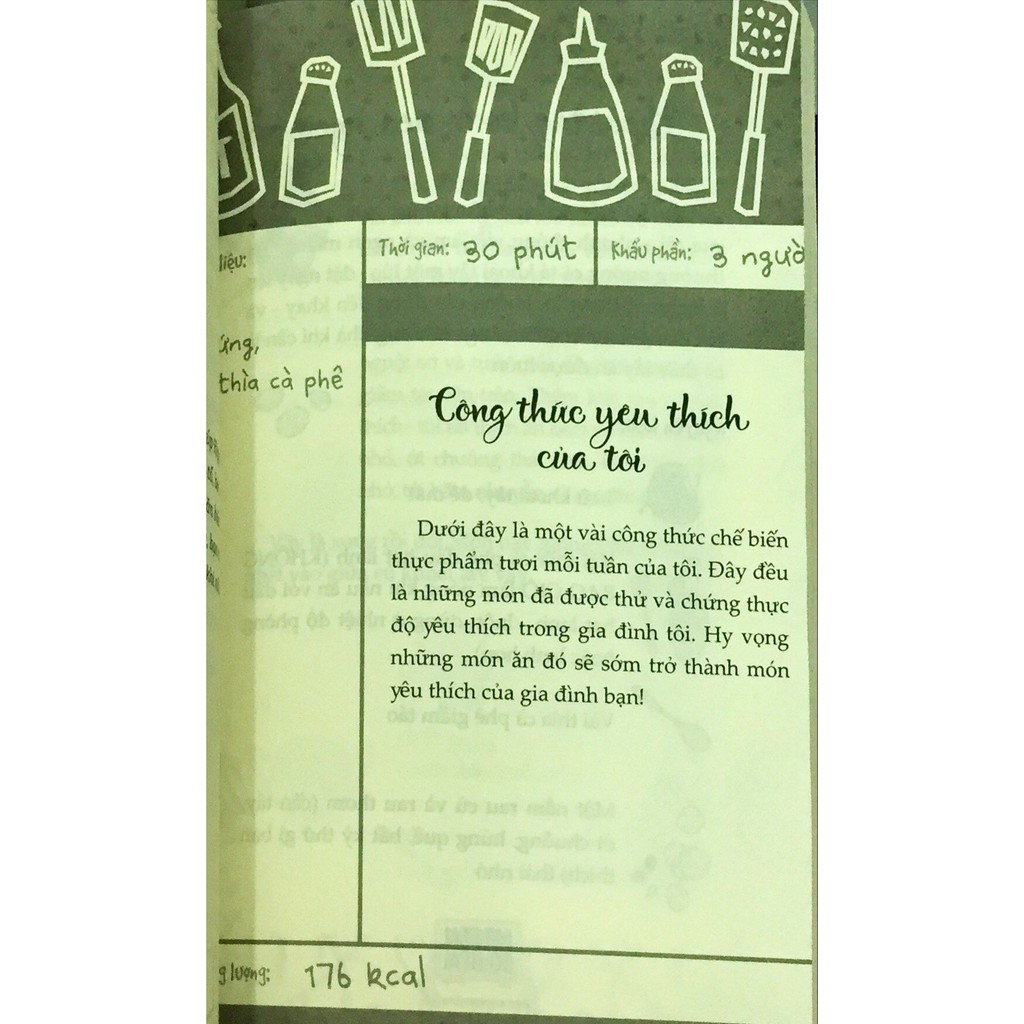 Thời gian: 30 phút Khẩu phần: 3 ngườ
liệu:
ứng,
thìa cà phê
Công thức yêu thích
của tôi
Dưới đây là một vài công thức chế biến
thực phẩm tươi mỗi tuần của tôi. Đây đều
là những món đã được thử và chứng thực
độ yêu thích trong gia đình tôi. Hy vọng
những món ăn đó sẽ sớm trở thành món
yêu thích của gia đình bạn!
g lượng: 176 kcal